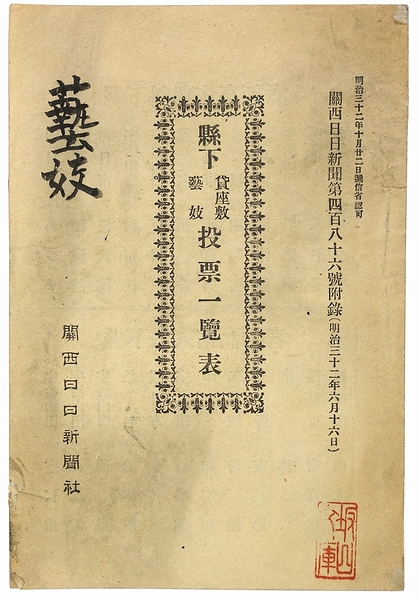 明治三十二年十月廿二日遞信省認可
關西日日新聞第四百八十六號附錄(明治三十二年六月十六日)
縣下貸座敷藝妓投票一覽表
關西日日新聞社
藝妓